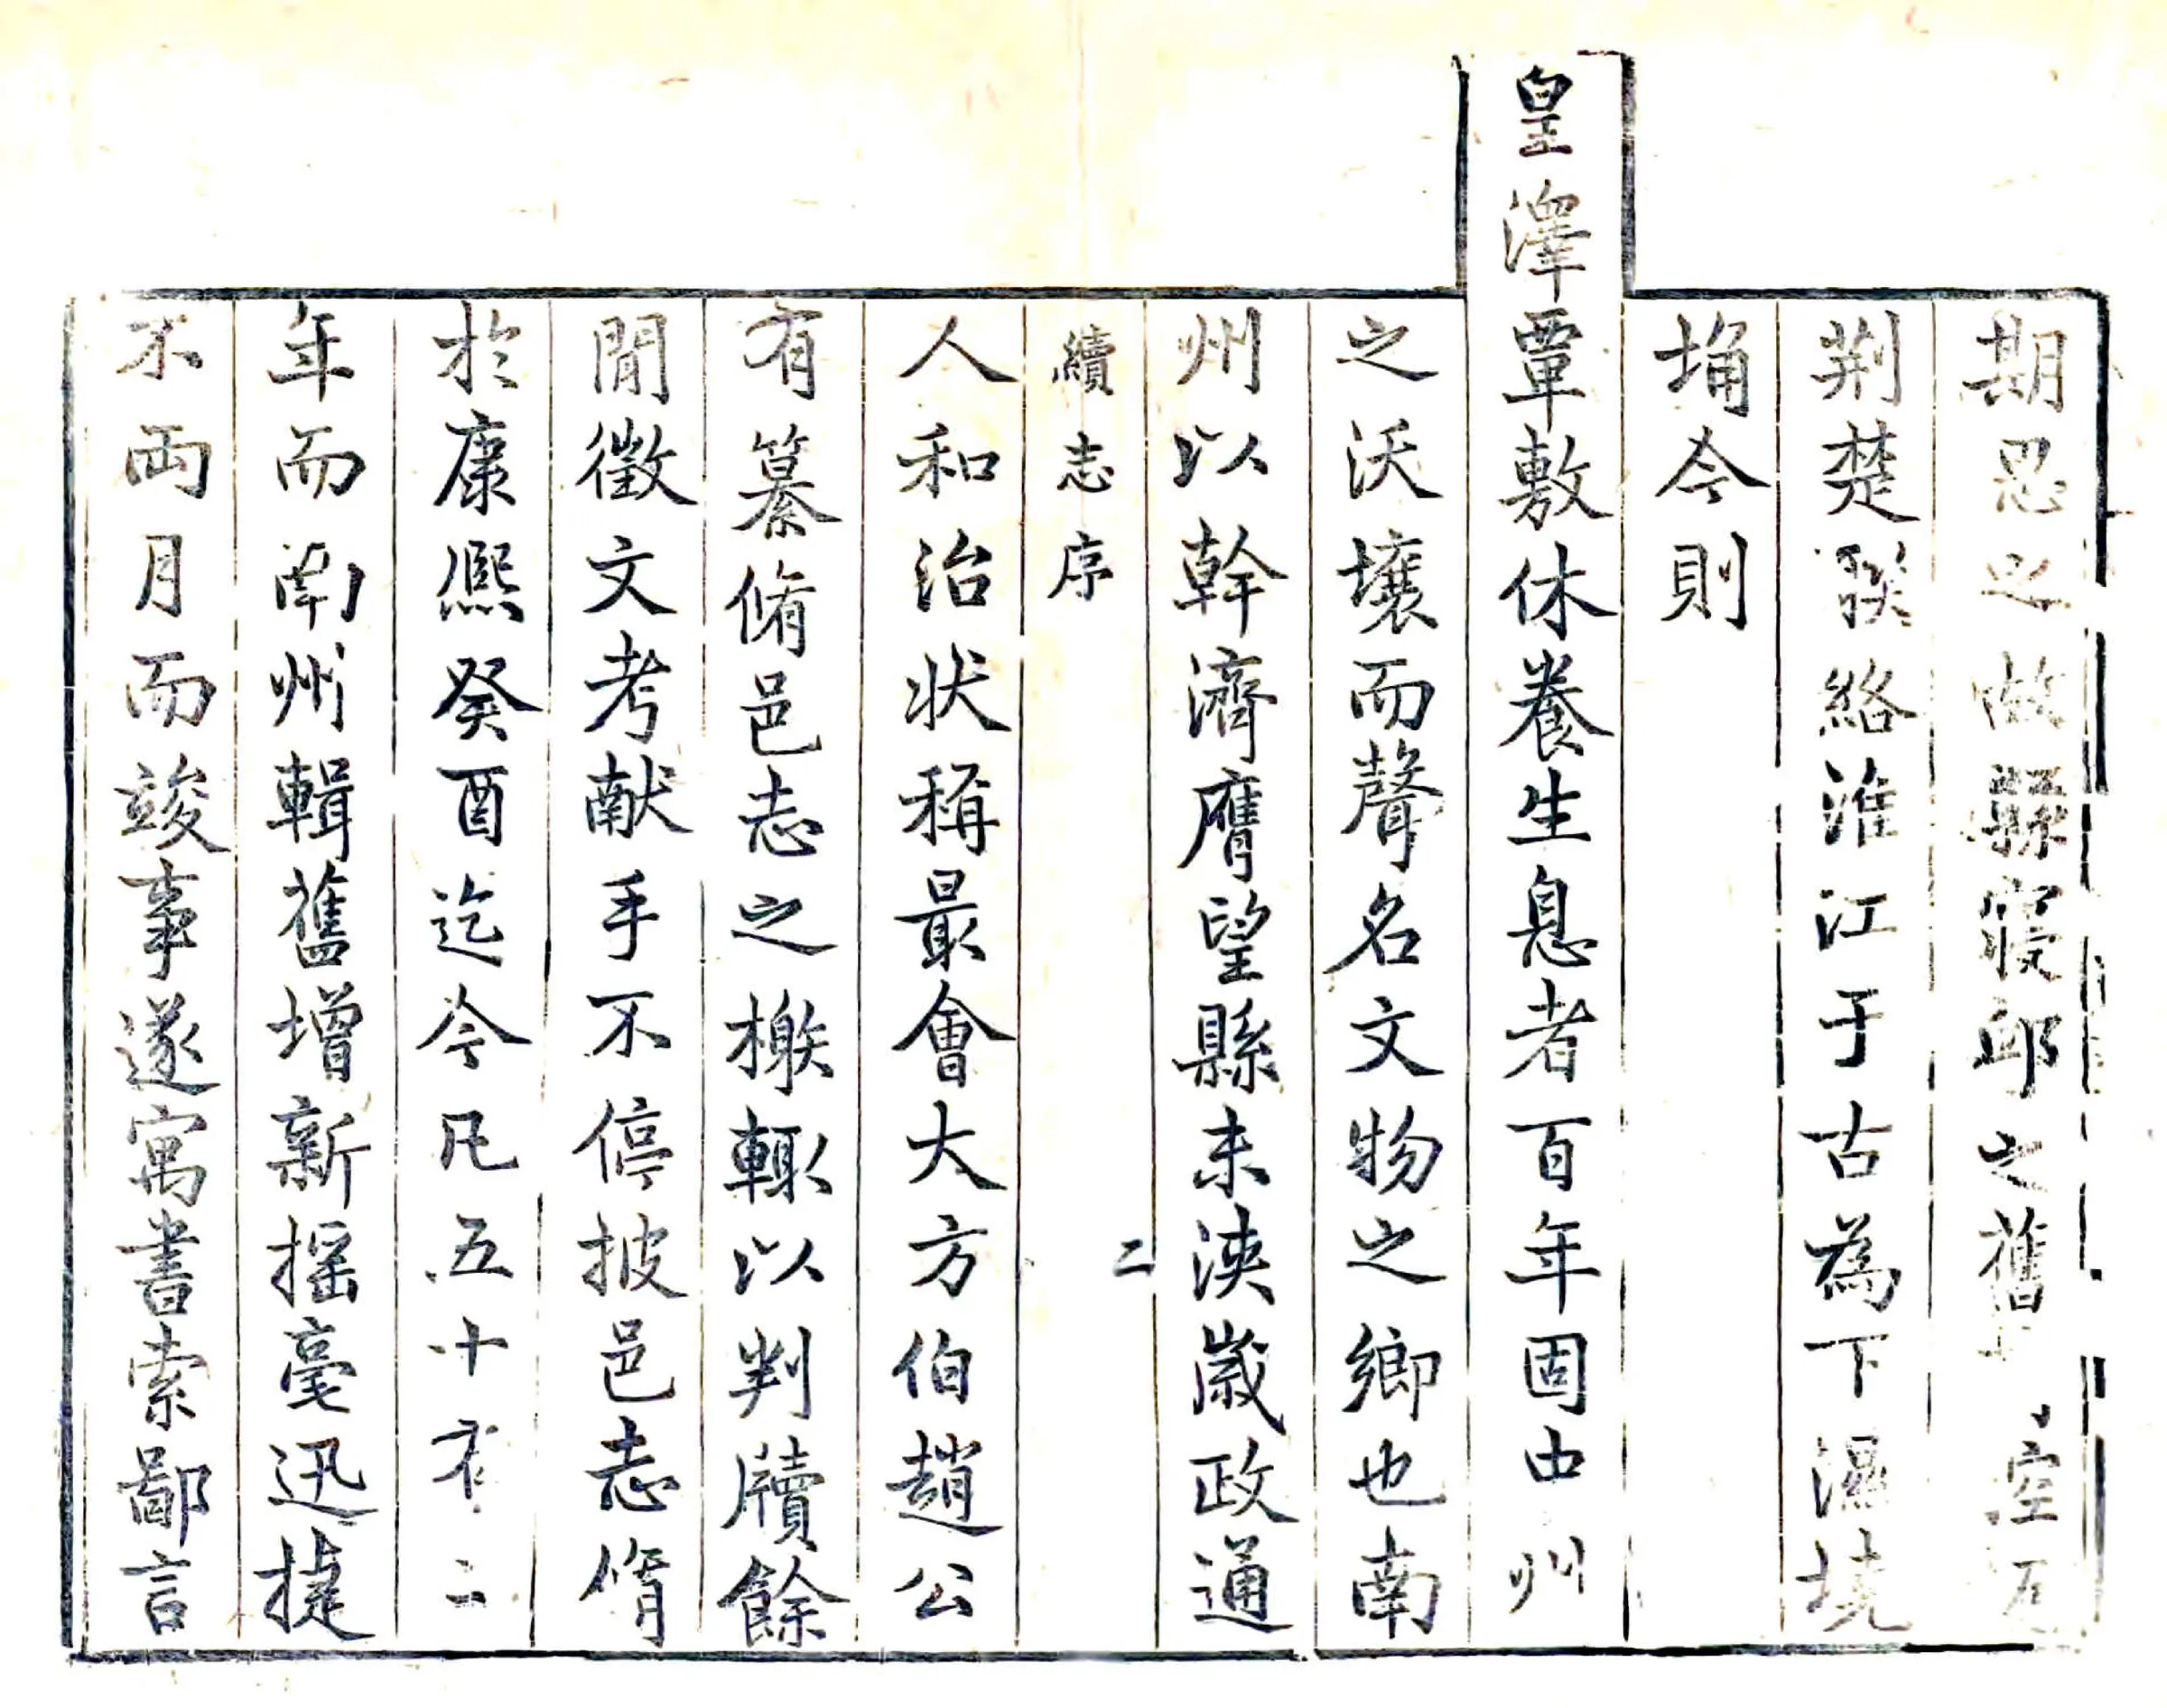 期思之故縣寢邱之舊
荆楚聯絡淮江于古為下濕墝
埆今則
皇澤覃敷休養生息者百年固由州
之沃壤而聲名文物之鄉也南
州以幹濟膺望縣未浹歲政通
續志序
二
人和治状稱最會大方伯趙公
有纂脩邑志之檄輙以判牘餘
閒徵文考献手不停披邑志脩
於康熙癸酉迄今凡五十有二
年而南州輯舊增新揺毫迅捷
不兩月而竣事遂寓書索鄙言